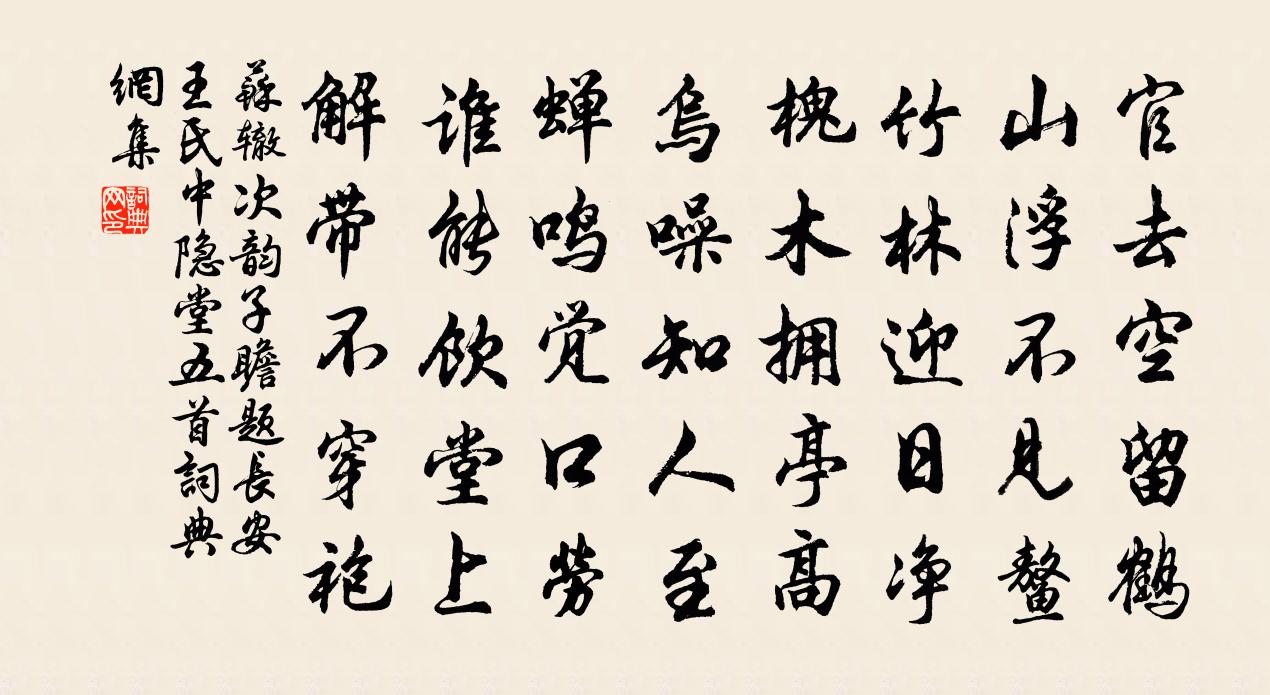 官去空留鹤
山浮不见鳌
竹林迎日净
槐木拥亭高
乌噪知人至
蝉鸣觉口劳
谁能饮堂上
解带不穿袍
蘇辙次韵子瞻题长安
王氏中隐堂五首詞典
網集
詞典
网印